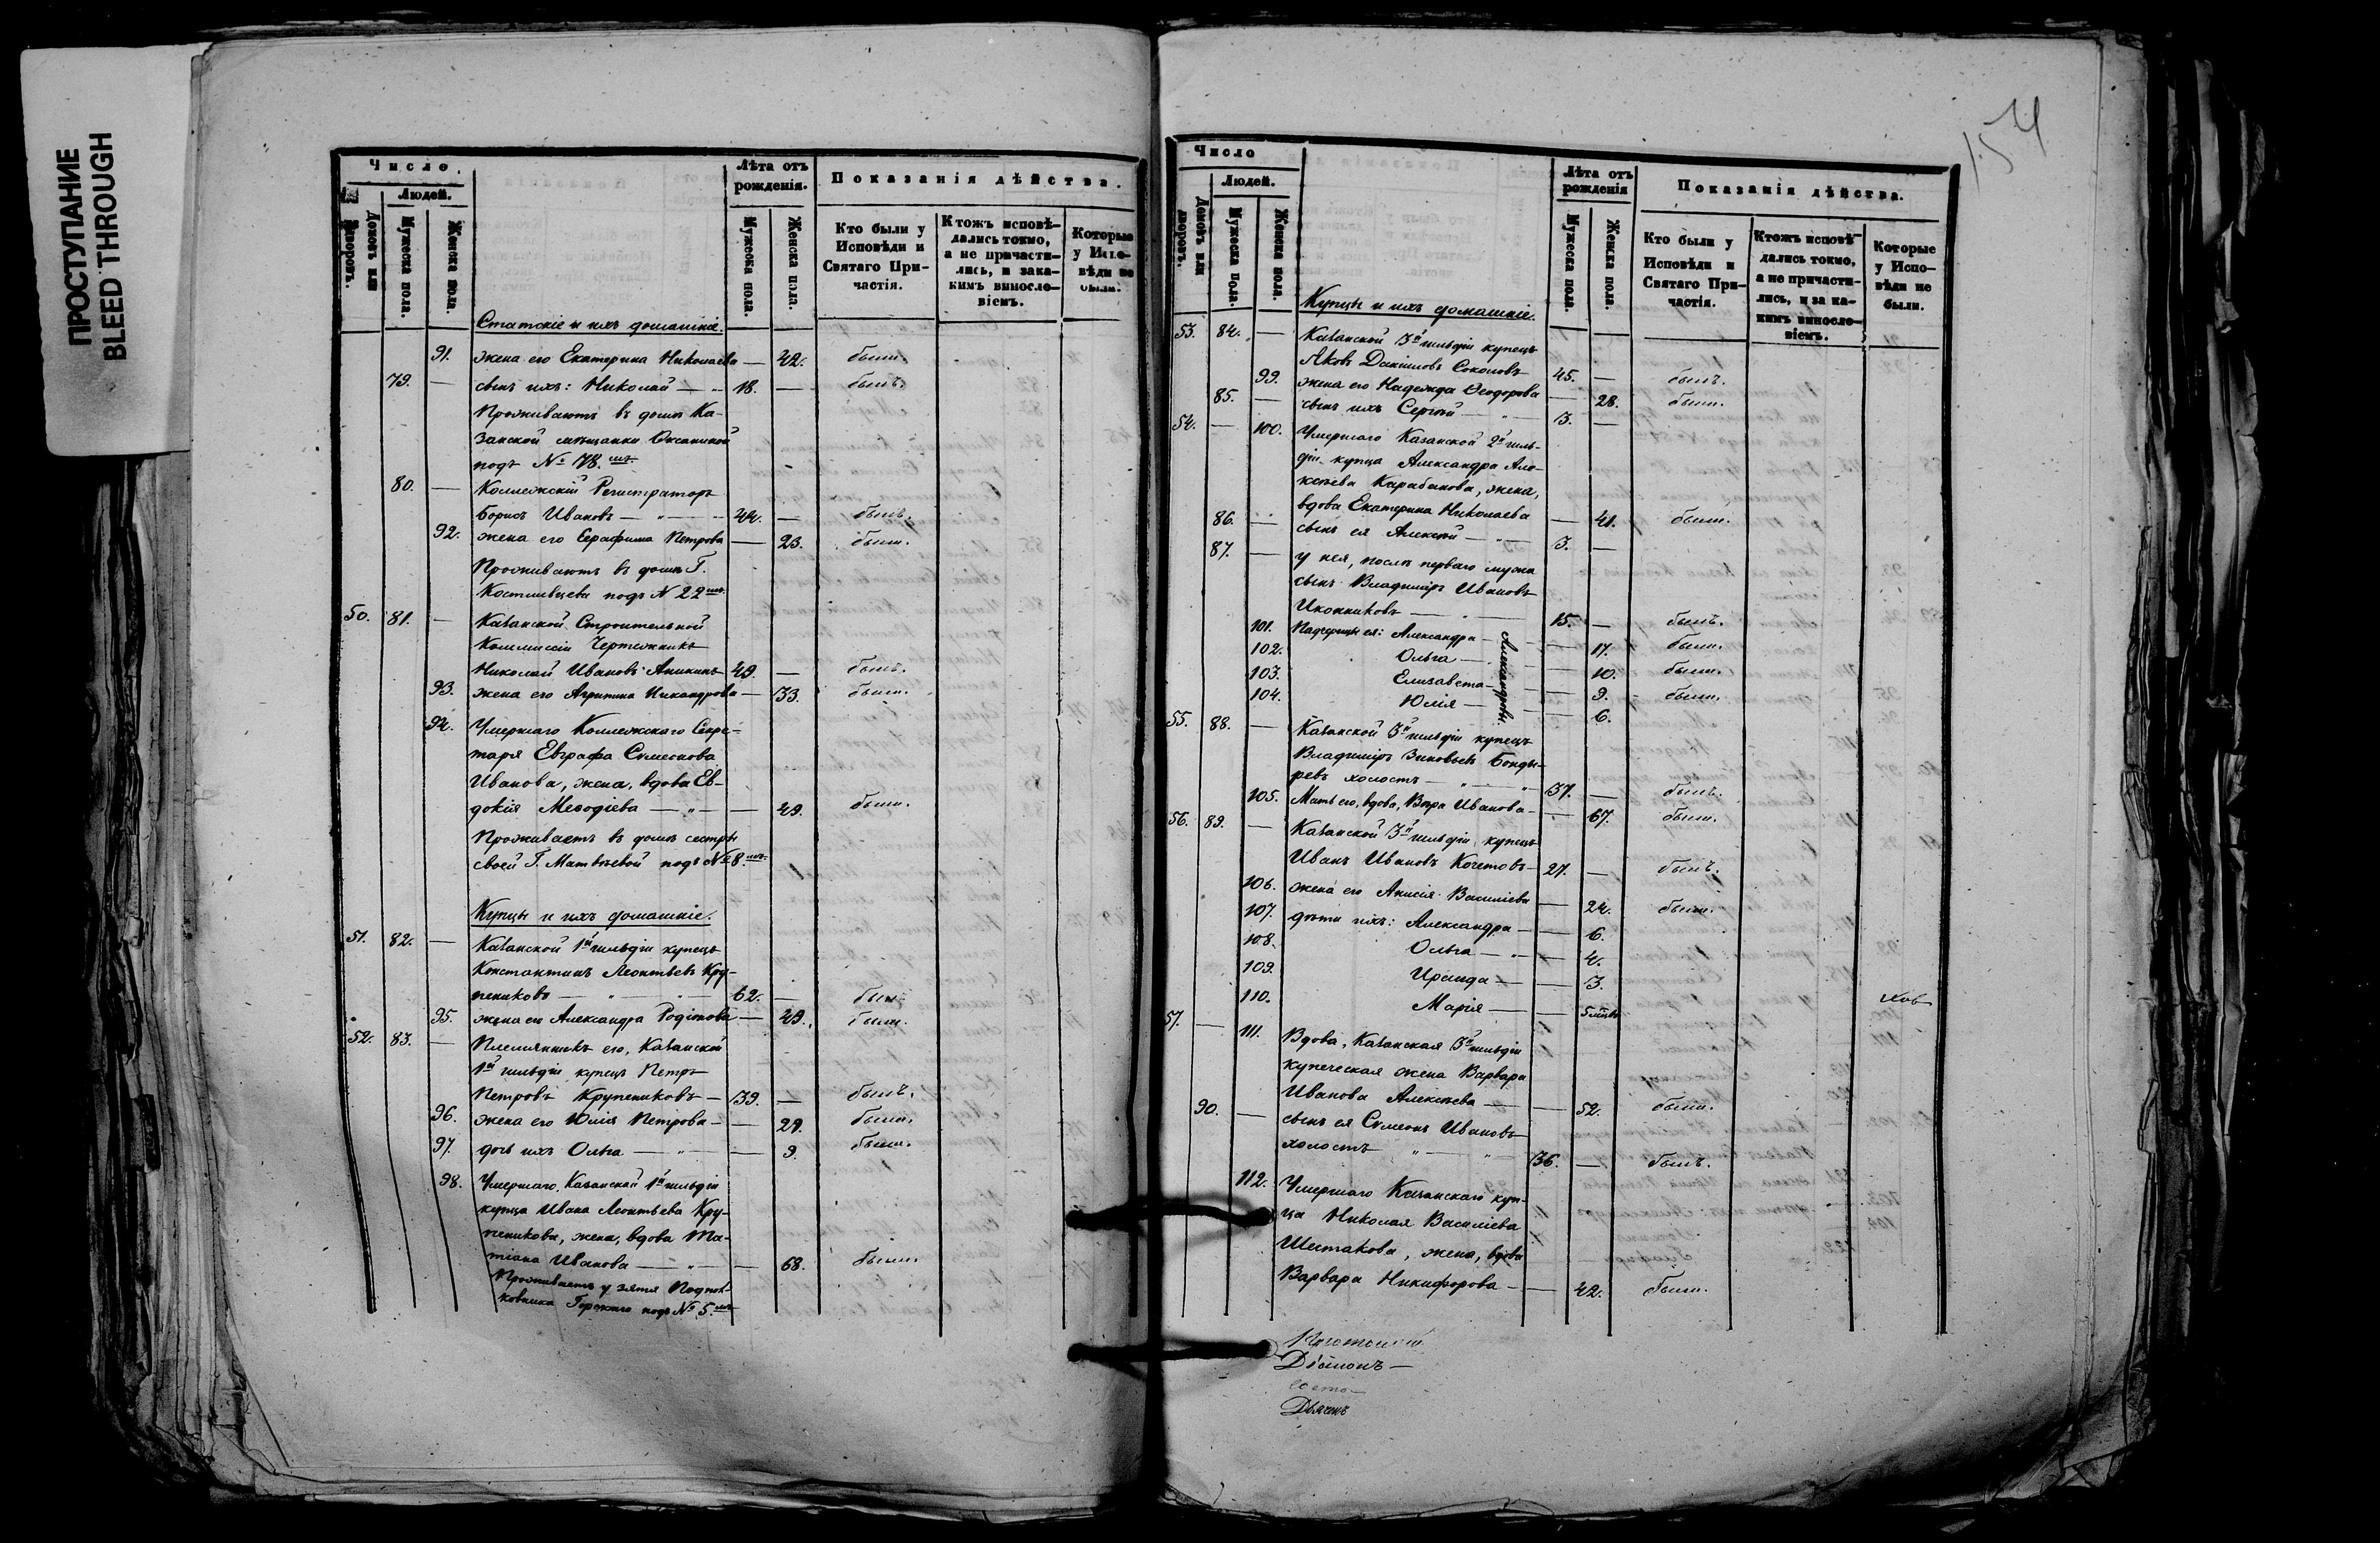 ПРОСТУПАНИЕ
BLEED THROUGH
Число.
Людей.
Домовъ или дворовъ.
Мужеска пола.
Женска пола.
Лѣта отъ рожденія.
Мужеска пола.
Женска пола.
Показанія дѣйства.
Кто были у Исповѣди и Святаго Причастія.
Ктожъ исповѣдались токмо, а не причастились, и за какимъ винословіемъ.
Которые у Исповѣди не были.
Статскіе и ихъ домашніе.
91. жена его Екатерина Николаева — 42. были.
79. — сынъ ихъ: Николай — 18. — былъ.
Проживаютъ въ домѣ Ка-
занской мѣщанки
подъ № 78.мъ
80. — Коллежскій Регистраторъ
Борисъ Ивановъ — " — 44. — былъ.
92. жена его Серафима Петрова — 23. были.
Проживаютъ въ домѣ Г.
Костливцева подъ N 22мъ
50. 81. — Казанской Строительной
Коммиссіи Чертежникъ
Николай Ивановъ Аникинъ 49. — былъ.
93. жена его Агрипина Никандрова — 33. были.
94. Умершаго Коллежскаго Секре-
таря Евграфа Симеонова
Иванова, жена, вдова Ев-
докія Меѳодіева — " — 49. были.
Проживаетъ въ домѣ сестры
своей Г. Матвѣевой подъ № 8.мъ
Купцы и ихъ домашніе.
51. 82. — Казанской 1й гильдіи купецъ
Константинъ Леонтьевъ Кру-
пениковъ — " — 62. — былъ
95. жена его Александра Родіонова — 49. были.
52. 83. — Племянникъ его, Казанской
1й гильдіи купецъ Петръ
Петровъ Крупениковъ — 39. — былъ.
96. жена его Юлія Петрова — 29. были.
97. дочь ихъ Ольга — " — 9. были.
98. Умершаго Казанскаго 1й гильдіи
купца Ивана Леонтьева Кру-
пеникова, жена, вдова Та-
тіана Иванова — " — 68. были.
Проживаетъ у зятя Подпол-
ковника Горскаго подъ № 5.мъ
154
Число
Людей.
Домовъ или дворовъ.
Мужеска пола.
Женска пола.
Лѣта отъ рожденія
Мужеска пола.
Женска пола.
Показанія дѣйства.
Кто были у Исповѣди и Святаго Причастія.
Ктожъ исповѣдались токмо, а не причастились, и за какимъ винословіемъ.
Которые у Исповѣди не были.
Купцы и ихъ домашніе.
53. 84. — Казанской 3й гильдіи купецъ
Яковъ Даниловъ Соколовъ 45. — былъ.
99. жена его Надежда Ѳеодорова — 28. были.
85. — сынъ ихъ Сергѣй — " — 3. —
54. — 100. Умершаго Казанской 2й гиль-
діи купца Александра Але-
ксѣева Карабанова, жена,
вдова Екатерина Николаева — 41. были.
86. — сынъ ея Алексѣй — " — 3. —
87. — у нея, послѣ перваго мужа
сынъ Владиміръ Ивановъ
Иконниковъ — 15. — былъ.
101. Падчерицы ея: Александра — 17. были.
102. Ольга — 10. были.
103. Елизавета — 9. были.
104. Юлія — 6.
Александровы.
55. 88. — Казанской 3й гильдіи купецъ
Владиміръ Зиновьевъ Бонды-
ревъ холостъ — " 37. — былъ.
105. Мать его, вдова, Вѣра Иванова — 67. были.
56. 89. — Казанской 3й гильдіи купецъ
Иванъ Ивановъ Кочетовъ — 27. — былъ.
106. жена его Анисія Василіева — 24. были.
107. дѣти ихъ: Александра — 6.
108. Ольга — " — 4.
109. Ираида — 3.
110. Марія — 5 мѣсяц.
57. — 111. Вдова, Казанская 3й гильдіи
купеческая жена Варвара
Иванова Алексѣева — 52. были.
90. — сынъ ея Симеонъ Ивановъ
холостъ " — " 36. — былъ.
112. Умершаго Казанскаго куп-
ца Николая Василіева
Шестакова, жена, вдова
Варвара Никифорова — 42. были.
Діаконъ —
Дьячекъ